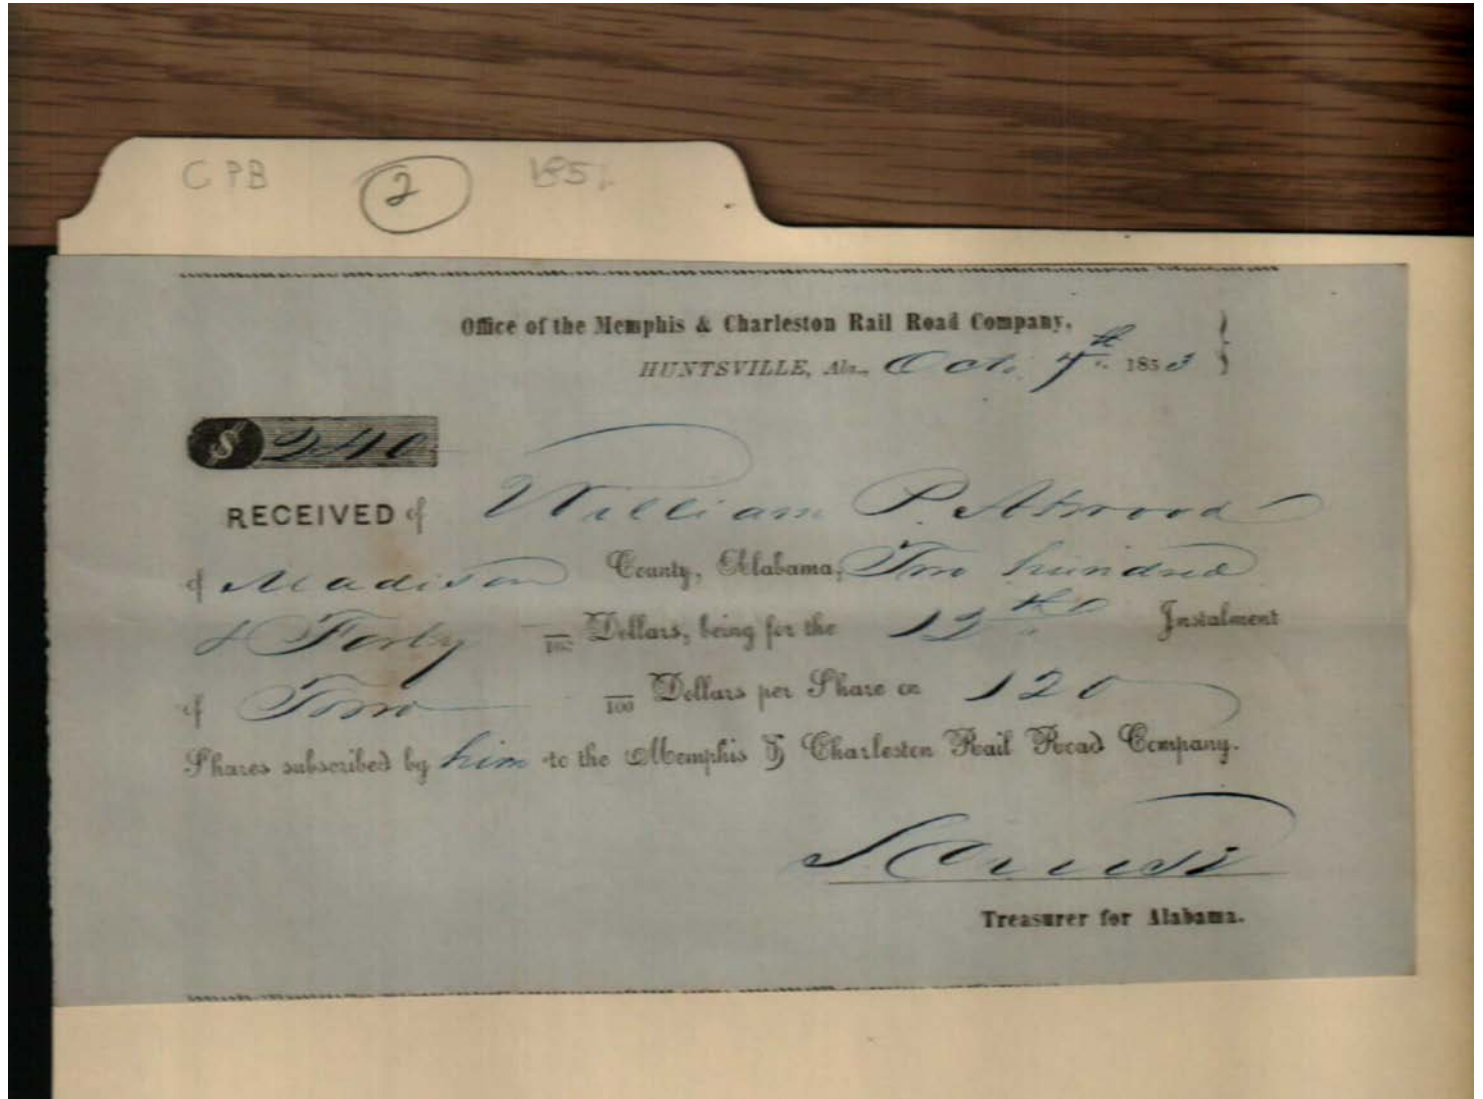 CPB 2 185
Office of the Memphis & Charleston Rail Road Company,
HUNTSVILLE, Ala., Oct. 7th 1853
$ 240
RECEIVED of William P. Atwood
of Madison County, Alabama, Two hundred
& Forty /100 Dollars, being for the Instalment
of Two /100 Dollars per Share on 120
Shares subscribed by him to the Memphis & Charleston Rail Road Company.
Treasurer for Alabama.